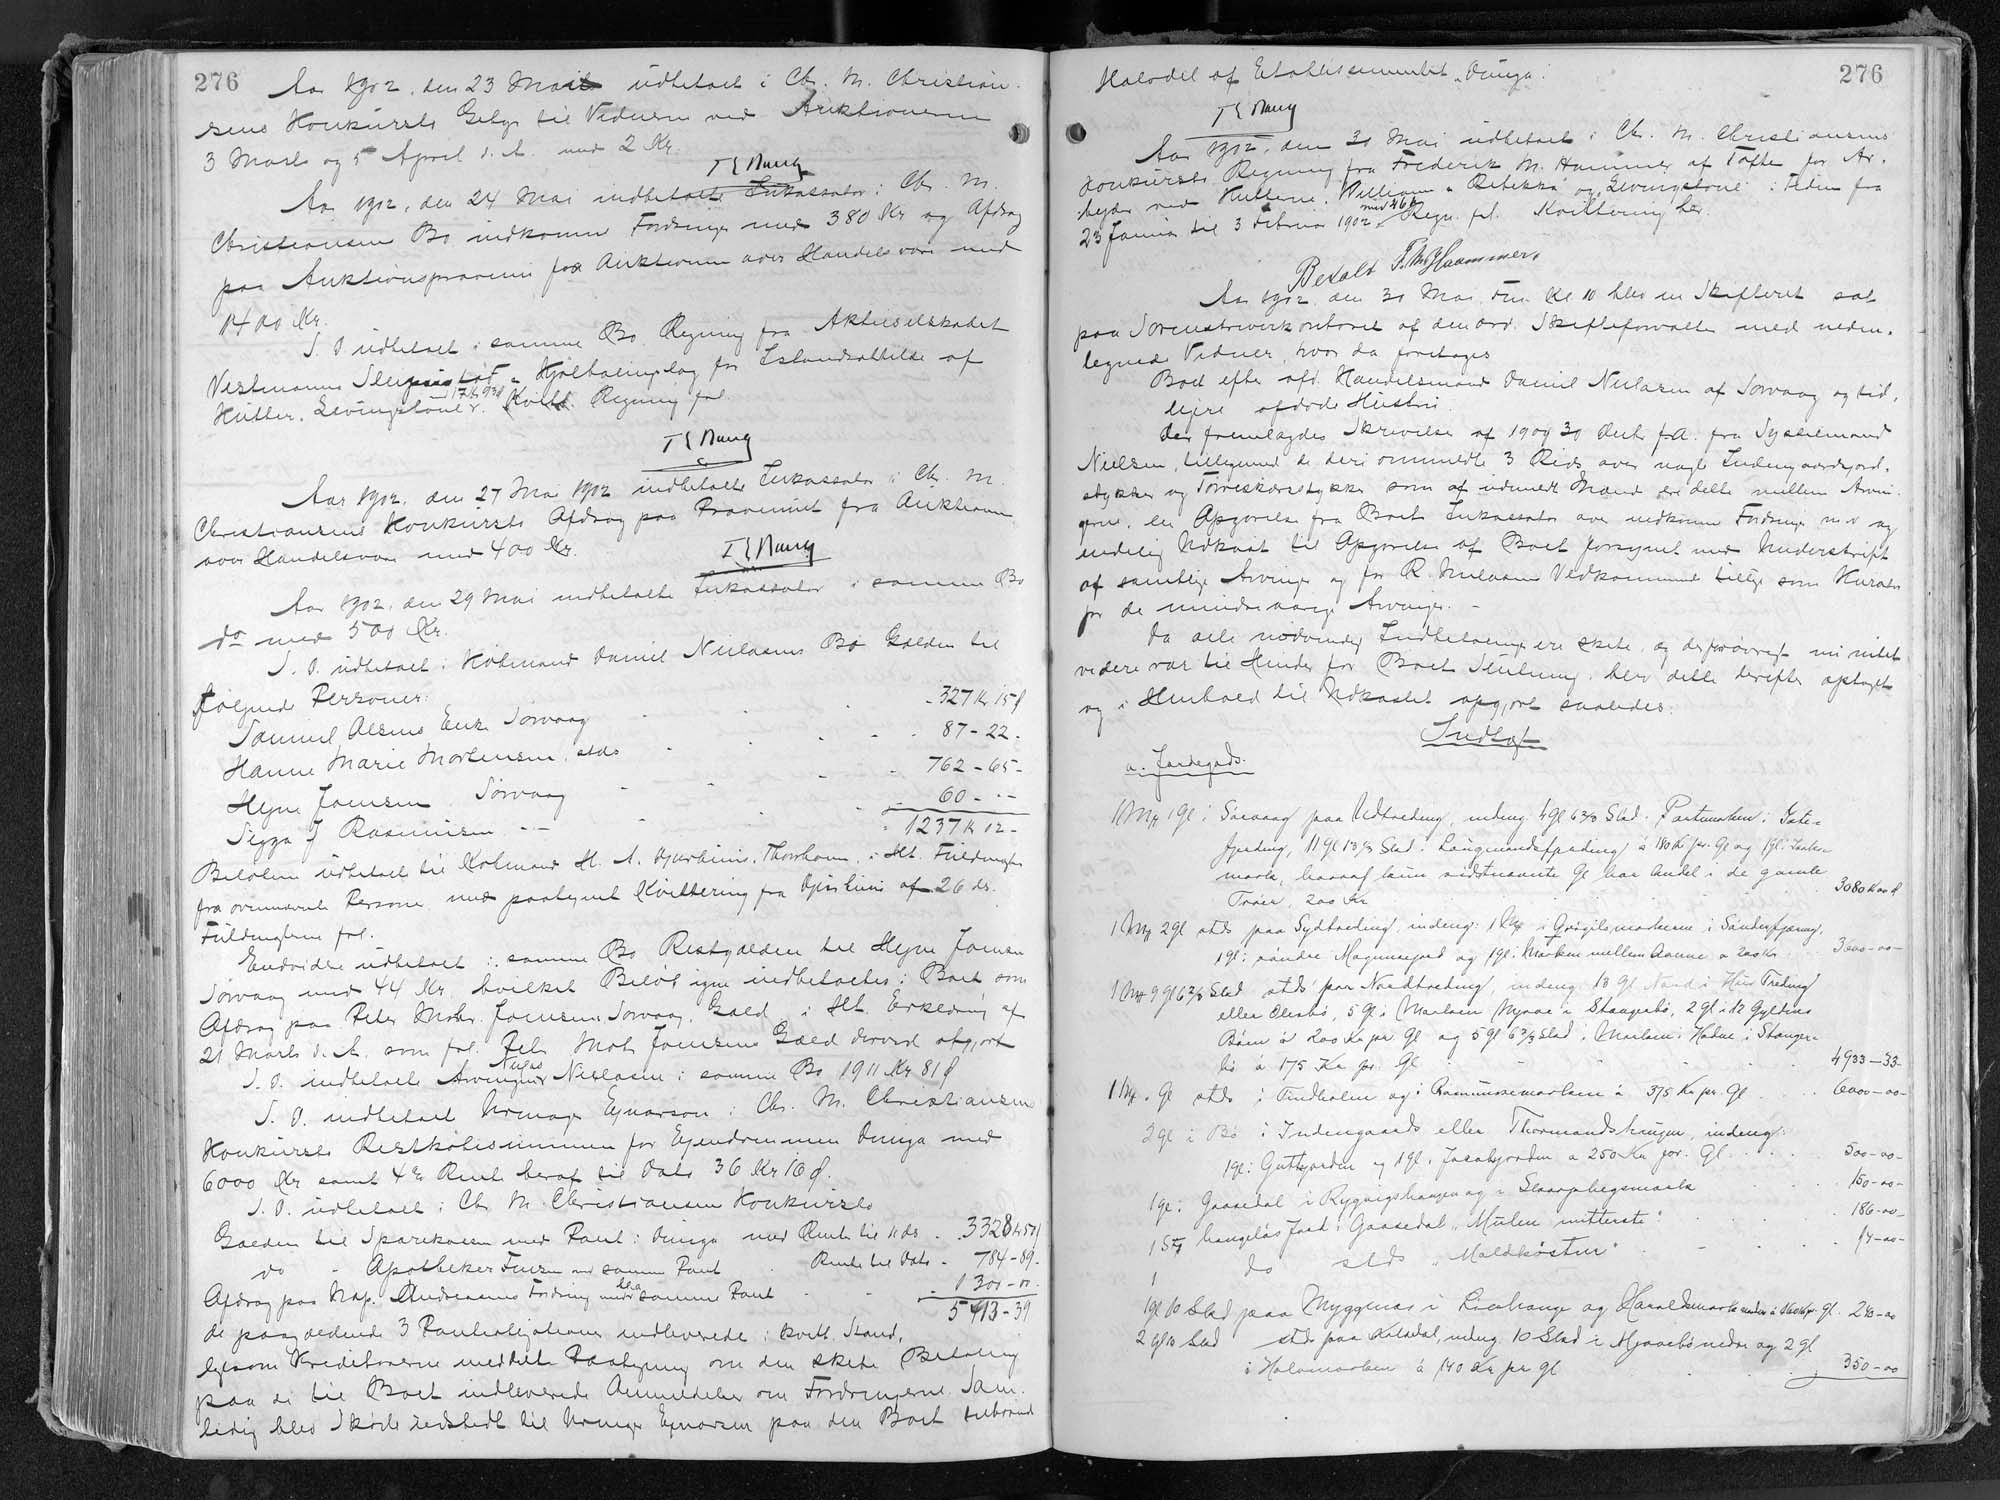 276
Aar 1902, den 23 Mai udbetalt i Chr. M. Christian-
sens Konkursbo Gebyr til Vidnerne ved Auktionerne
3 Marts og 5 April d. A. med 2 Kr.
Aar 1902, den 24 Mai indbetalte Inkassator i Chr. M.
Christiansens Bo indkomne Fordringer med 380 Kr og Afdrag
paa Auktionsprovenu fra Auktionen over Handelsvarer med
1400 Kr.
S. D. udbetalt i samme Bo Regning fra Aktieselskabet
Vestmanna Hjælbaeingslag for Islandsafdelse af
Kutter Livingstone Kvitt. Regning fol.
Aar 1902, den 27 Mai 1902 indbetalte Inkassator i Chr. M.
Christiansens Konkursbo Afdrag paa Provenuet fra Auktionen
over Handelsvarer med 400 Kr.
Aar 1902, den 29 Mai indbetalte Inkassator i samme Bo
do med 500 Kr.
S. D. udbetalt i Købmand Daniel Nielsens Bo Gælden til
følgende Personer:
Samuel Olsens Enke Sørvaag 327 Kr 15 Ø
Hanne Marie Mortensen, stds 87 - 22 -
Hejne Joensen Sørvaag 762 - 65 -
J Rasmussen 60 - -
1237 Kr 12 -
Beløbene udbetalt til Købmand H. N. Djurhuus, Thorshavn, i Hht. Fuldmagter
fra ovennævnte Personer med paategnet Kvittering fra Djurhuus af 26 ds.
Fuldmagterne fol.
Endvidere udbetalt i samme Bo Restgælden til Hejne Joensen
Sørvaag med 44 Kr, hvilket Beløb igen indbetaltes i Boet som
Afdrag paa Peter Mohr Joensens, Sørvaag, Gæld i Hht. Erklæring af
21 Marts d. A. som fol. Peter Mohr Joensens Gæld derved afgjort
S. D. indbetalte Arvingen Niels Nielsen i samme Bo 1911 Kr 81 Ø
S. D. indbetalt Ejnarson i Chr. M. Christiansens
Konkursbo Restkøbesummen for Ejendommen Dunga med
6000 Kr samt 4% Rente heraf til Dato 36 Kr 16 Ø.
S. D. udbetalt i Chr. M. Christiansens Konkursbo
Gælden til Sparekassen med Pant i Dunga med Rente til 11 ds. 3328 Kr 50 Ø
do - Apotheker Fuursen med samme Pant Rente til Dato - 784 - 89 -
Afdrag paa Nap. Andreasens Fordring med samme Pant 1300 - 00 -
5413 - 39
de paagældende 3 Panteobligationer indleverede i kvitt. Stand,
ligesom Kreditorerne meddelte Paategning om den skete Betaling
paa de til Boet indleverede Anmeldelser om Fordringerne. Sam-
tidig blev Skøde udstedt til Ejnarson paa den Boet tilhørende
276
Halvdel af Etablissementet "Dunga".
Aar 1902, den 30 Mai udbetalt i Chr. M. Christiansens
Konkursbo Regning fra Frederik M. Hammer af Tofte for Ar-
bejder ved Kutterne William, "Rebekka" og "Livingstone" i Tiden fra
23 Januar til 3 Februar 1902 Regn. fol. Kvittering her.
Betalt F. M. Hammer.
Aar 1902, den 30 Mai Fm. Kl 10 blev en Skifteret sat
paa Sorenskriverkontoret af den ord. Skifteforvalter med neden-
tegnede Vidner, hvor da foretoges
Boet efter afd. Handelsmand Daniel Nielsen af Sørvaag og tid-
ligere afdøde Hustru.
Der fremlagdes Skrivelse af 19 og 30 Decbr f.A. fra Sysselmand
Nielsen, tilligemed de deri ommeldte 3 Rids over nogle Indengaardsjord-
stykker og Tørveskærstykker som af udmeldt Mænd ere delte mellem Arvin-
gerne, en Opgørelse fra Boets Inkassator over indkomne Fordringer m.v. og
endelig Udkast til Opgørelse af Boet forsynet med Underskrift
af samtlige Arvinger og for R. Nielsens Vedkommende tillige som Kurator
for de mindreaarige Arvinger. -
Da alle nødvendige Indbetalinger ere skete, og der forøvrigt nu intet
videre var til Hinder for Boets Slutning, blev dette derefter optaget
og i Henhold til Udkastet opgjort saaledes:
Indtægt
a. Jordegods.
1 Mrk 1 Gl i Sørvaag paa Udtreding, indeng. 4 Gl 6 2/3 Skd. Partmarken i Gote-
fjerding, 11 Gl 13 1/3 Skd i Langmandsfjerding à 180 Kr pr. Gl og 1 Gl i
mark, hvoraf kun sidstnævnte Gl har Andel i de gamle
Traer, 200 Kr 3080 Kr 00 Ø
1 Mrk 2 Gl stds paa Sydtreding, indeng: 1 Mrk i Grigilsmarkerne i Sønderfjering,
1 Gl i søndre Magnusejord og 1 Gl i Marken mellem Aaerne à 200 Kr 3600 - 00 -
1 Mrk 9 Gl 6 2/3 Skd stds paa Nordtreding, indeng. 13 Gl Nord i Hus Treding
eller Olesbø, 5 Gl i Marken Myrar i Stangerbø, 2 Gl i 12 Gyllins
Bøen à 200 Kr pr Gl og 5 Gl 6 2/3 Skd i Marken i Stanger-
bø à 175 Kr pr. Gl 4933 - 33 -
1 Mrk - Gl stds i Tindholm og i Rasmusemarken à 375 Kr pr. Gl 6000 - 00 -
2 Gl i Bø i Indengaards eller Thormandstrigen, indeng:
1 Gl i Guttejorden og 1 Gl i Jacobjorden à 250 Kr pr. Gl 500 - 00 -
1 Gl i Gaasedal i Rygvigshaugen og i Skarphegsmark 150 - 00 -
1 Stk haugeløs Jord i Gaasedal "Mulen mitterste" 186 - 00 -
1 do stds "Moldkøsten" 14 - 00 -
1 Gl 10 Skd paa Myggenæs i Liarhauge og Haraldsmark Gl. 240 - 00
2 Gl 10 Skd stds paa Kalsdal, indeng. 10 Skd i og 2 Gl
i Holamarken à 140 Kr pr Gl 350 - 00